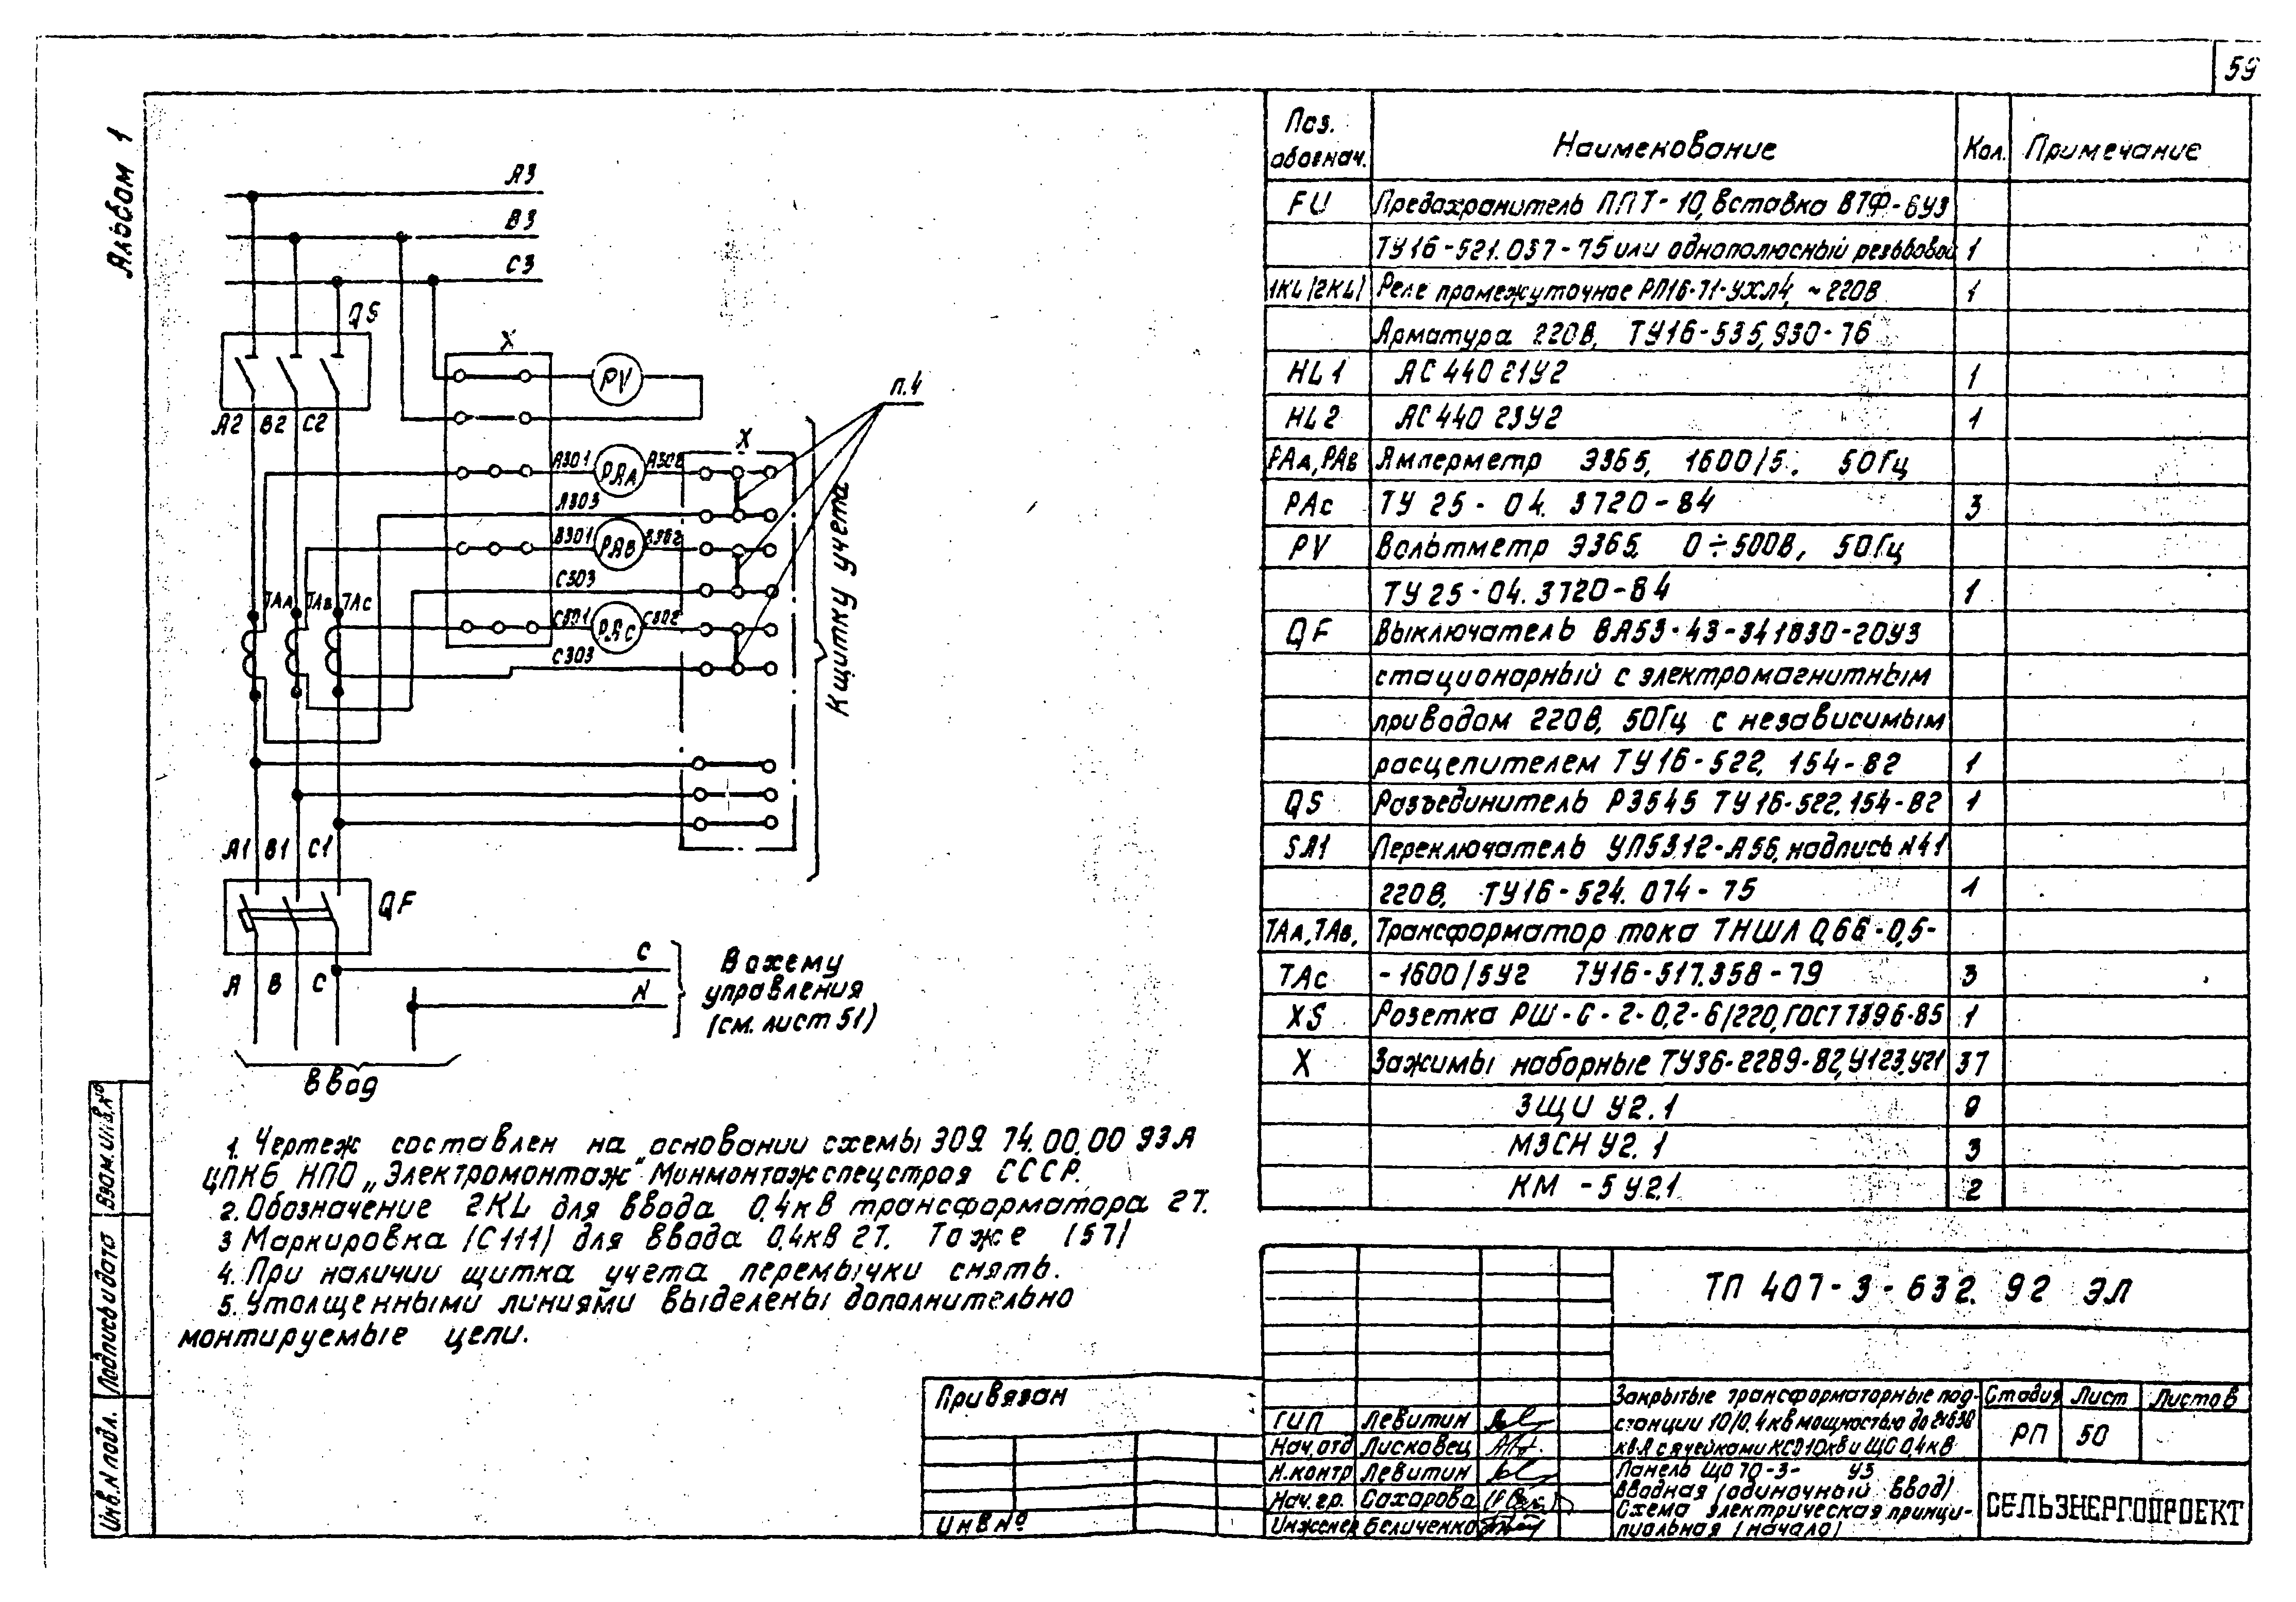 59
Альбом 1
А3
В3
С3
QS
X
PV
п.4
А2 В2 С2
X
А301 РАА А302
А303
В301 РАВ В302
С303
ТАА ТАВ ТАС
С301 РАС С302
С303
К щитку учета
А1 В1 С1
QF
С
N
В схему
управления
(см. лист 51)
А В С
Ввод
1. Чертеж составлен на основании схемы 309. 74.00.00 93А
ЦПКБ НПО „Электромонтаж" Минмонтажспецстроя СССР.
2. Обозначение 2KL для ввода 0,4кВ трансформатора 2Т.
3 Маркировка (С111) для ввода 0,4кВ 2Т. То же (57)
4. При наличии щитка учета перемычки снять.
5. Утолщенными линиями выделены дополнительно
монтируемые цепи.
Поз.
обознач.
Наименование
Кол.
Примечание
FU Предохранитель ППТ-10, вставка ВТФ-6У3
ТУ16-521.037-75 или однополюсный резьбовой 1
1KL(2KL) Реле промежуточное РП16-71-УХЛ4, ~220В 1
Арматура 220В, ТУ16-535,930-76
HL1 АС 440 21У2 1
HL2 АС 440 23У2 1
РАА, РАВ Амперметр Э365, 1600/5. 50Гц
РАс ТУ 25-04. 3720-84 3
PV Вольтметр Э365. 0÷500В, 50Гц
ТУ 25-04. 3720-84 1
QF Выключатель ВА53-43-341830-20У3
стационарный с электромагнитным
приводом 220В, 50Гц с независимым
расцепителем ТУ16-522, 154-82 1
QS Разъединитель РЭ545 ТУ16-522.154-82 1
SA1 Переключатель УП5312-А56, надпись №41
220В, ТУ16-524. 074-75 1
ТАА, ТАВ, Трансформатор тока ТНШЛ 0,66-0,5-
ТАс -1600/5У2 ТУ16-517.358-79 3
XS Розетка РШ-С-2-0,2-6/220, ГОСТ 7396-85 1
X Зажимы наборные ТУ36-2289-82, У123.У21 37
ЗЩИ У2.1 9
МЗСН У2.1 3
КМ-5 У2.1 2
ТП 407-3-632. 92 ЭЛ
Закрытые трансформаторные под-
станции 10/0,4кв мощностью до 2х630
кВА с ячейками КСО 10кв и ЩО 0,4кв
Стадия Лист Листов
РП 50
Панель ЩО 70-3- У3
Вводная (одиночный ввод)
Схема электрическая принци-
пиальная (начало)
СЕЛЬЭНЕРГОПРОЕКТ
ГИП Левитин
Нач.отд Лисковец
Н.контр Левитин
Нач.гр. Сахарова
Инженер Беличенко
Привязан
Инв №
Взам.инв.№
Подпись и дата
Инв.№ подл.